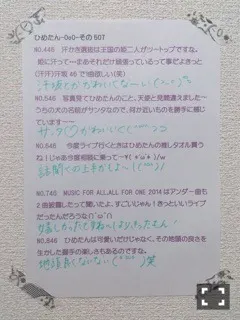 ひめたん-OxO-その507
NO.446 汗かき選抜は王国の姫二人がツートップですな。
姫に汗って一まあそれだけ頑張っているって事だよきっと
(汗汗)汗坂46で1曲欲しい(笑)
汗坂とかかわいくな～い
NO.546 写真見てひめたんのこと、天使と見間違えました～
うちの犬の名前がサンタなので、何か近いものを勝手に感じ
ています——
サンタ♡かわいい
NO.646 今度ライブ行くときはひめたんの推しタオル買うね
！じゅあ今度相談に乗って～
話聞くの上手だしよ～！
NO.740 MUSIC FOR ALL,ALL FOR ONE 2014はアンダー曲も
2曲披露したって聞いたよ、すごいじゃん！きっといいライブ
だったんだろうな
楽しかったですね～
NO.846 ひめたんは可愛いだけじゃなく、その地頭の良さを
生かした握手の楽しさもあるのですね。
地頭良くないない 笑